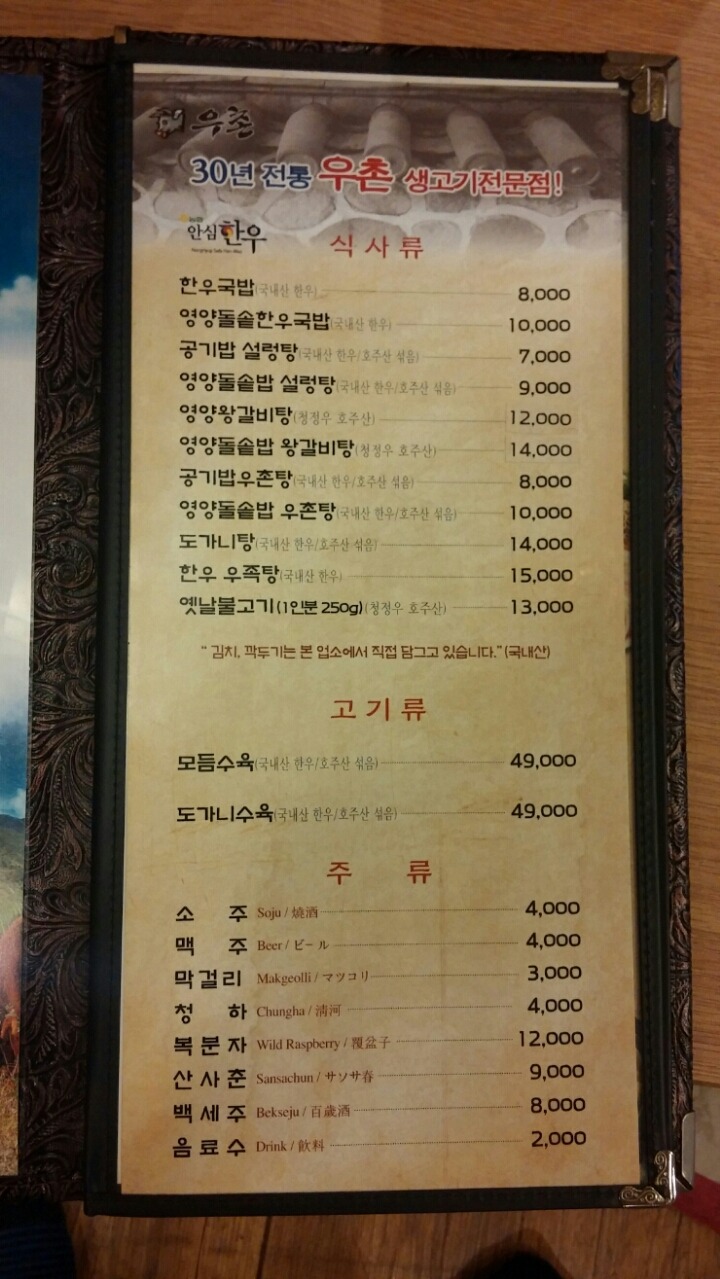 우촌
30년 전통 우촌 생고기전문점!
안심한우
식사류
한우국밥(국내산 한우) 8,000
영양돌솥한우국밥(국내산 한우) 10,000
공기밥 설렁탕(국내산 한우/호주산 섞음) 7,000
영양돌솥밥 설렁탕(국내산 한우/호주산 섞음) 9,000
영양왕갈비탕(청정우 호주산) 12,000
영양돌솥밥 왕갈비탕(청정우 호주산) 14,000
공기밥우촌탕(국내산 한우/호주산 섞음) 8,000
영양돌솥밥 우촌탕(국내산 한우/호주산 섞음) 10,000
도가니탕(국내산 한우/호주산 섞음) 14,000
한우 우족탕(국내산 한우) 15,000
옛날불고기(1인분 250g)(청정우 호주산) 13,000
“ 김치, 깍두기는 본 업소에서 직접 담그고 있습니다.” (국내산)
고기류
모듬수육(국내산 한우/호주산 섞음) 49,000
도가니수육(국내산 한우/호주산 섞음) 49,000
주 류
소 주 Soju / 燒酒 4,000
맥 주 Beer / ビール 4,000
막걸리 Makgeolli / マツコリ 3,000
청 하 Chungha / 淸河 4,000
복분자 Wild Raspberry / 覆盆子 12,000
산사춘 Sansachun / サソサ春 9,000
백세주 Bekseju / 百歲酒 8,000
음료수 Drink / 飮料 2,000